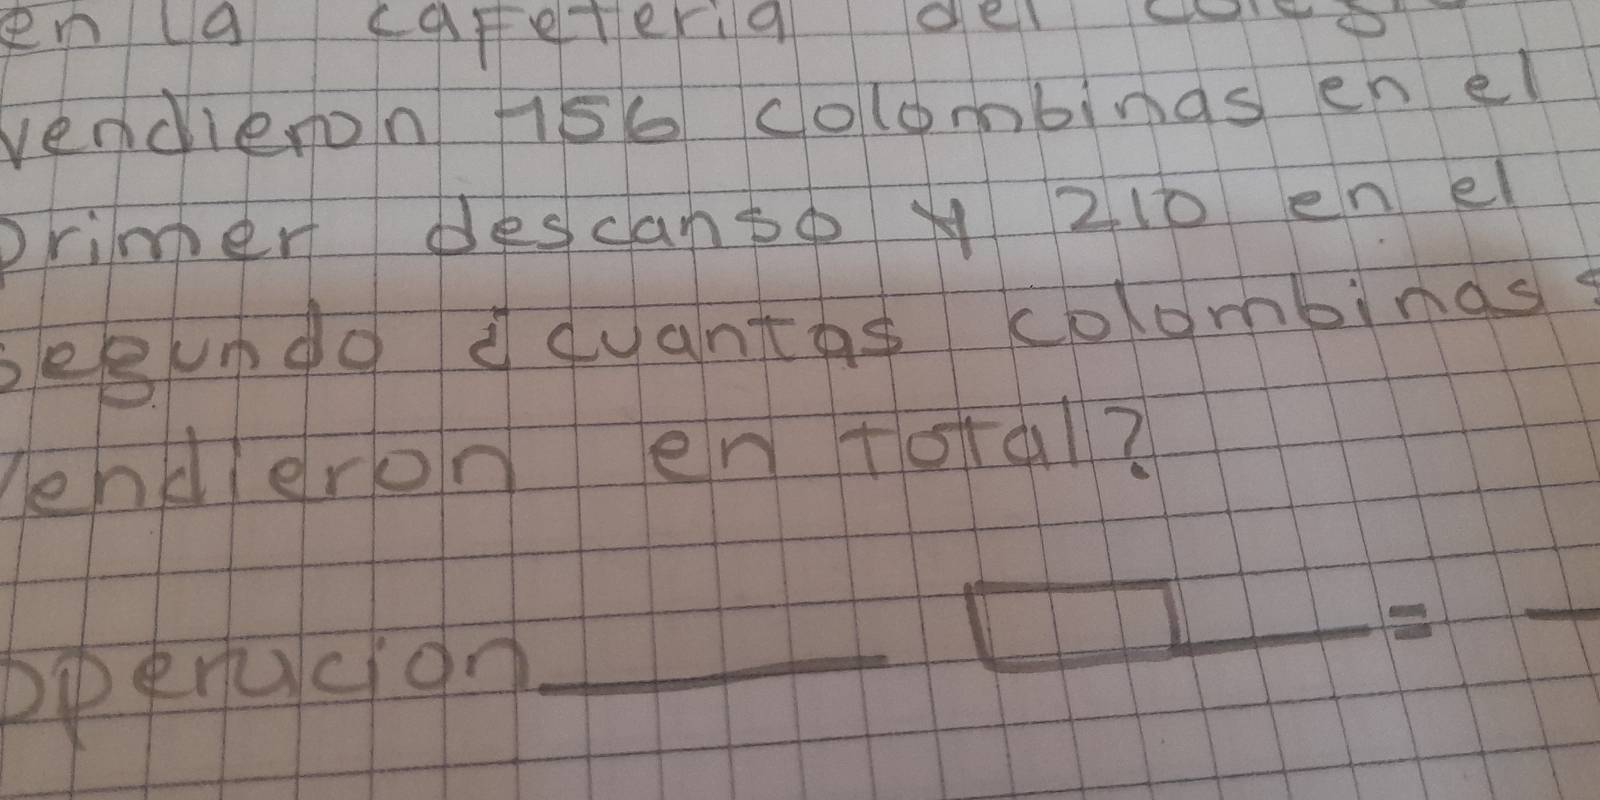 en la cafeteria del
vendieron 156 colombinas en el
primer descanso y 210 en el
segundo ¿cuantas colombinas
vendieron en total?
operacion ______ □ ____ = __